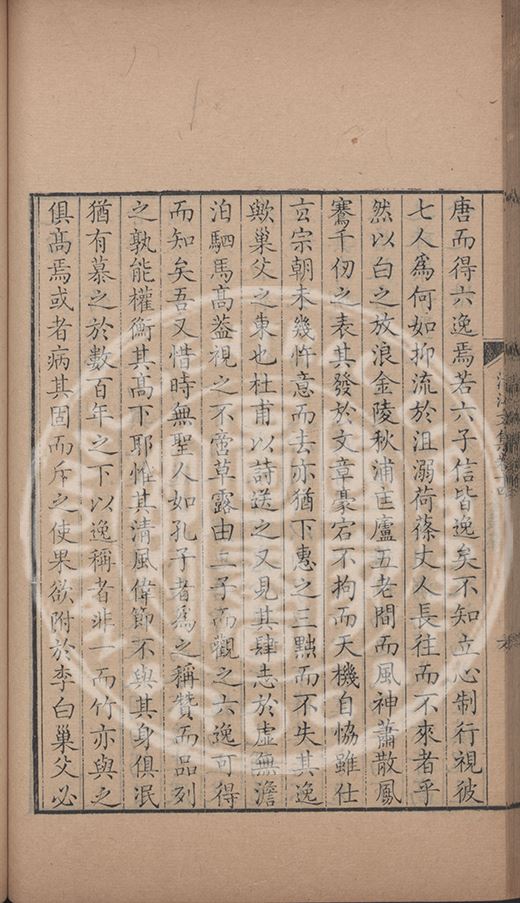 唐而得六逸焉若六子信皆逸矣不知立心制行視彼
七人爲何如抑流於沮溺荷蓧丈人長往而不來者乎
然以白之放浪金陵秋浦匡廬五老間而風神蕭散鳳
騫千仞之表其發於文章豪宕不拘而天機自恊雖仕
玄宗朝未幾忤意而去亦猶下惠之三黜而不失其逸
歟巢父之東也杜甫以詩送之又見其肆志於虛無澹
泊駟馬髙葢視之不啻草露由二子而觀之六逸可得
而知矣吾又惜時無聖人如孔子者爲之稱贊而品列
之孰能權衡其髙下耶惟其清風偉節不與其身俱泯
猶有慕之於數百年之下以逸稱者非一而竹亦與之
俱髙焉或者病其固而斥之使果欲附於李白巢父必